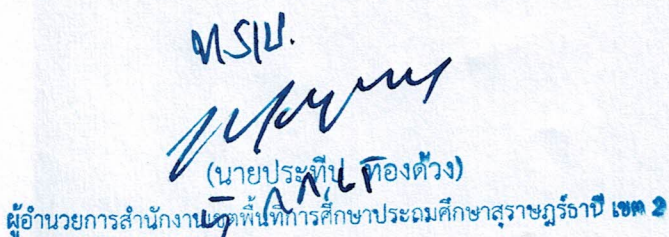 ทราบ.
(นายประทีป ทองด้วง)
ผู้อำนวยการสำนักงานเขตพื้นที่การศึกษาประถมศึกษาสุราษฎร์ธานี เขต 2